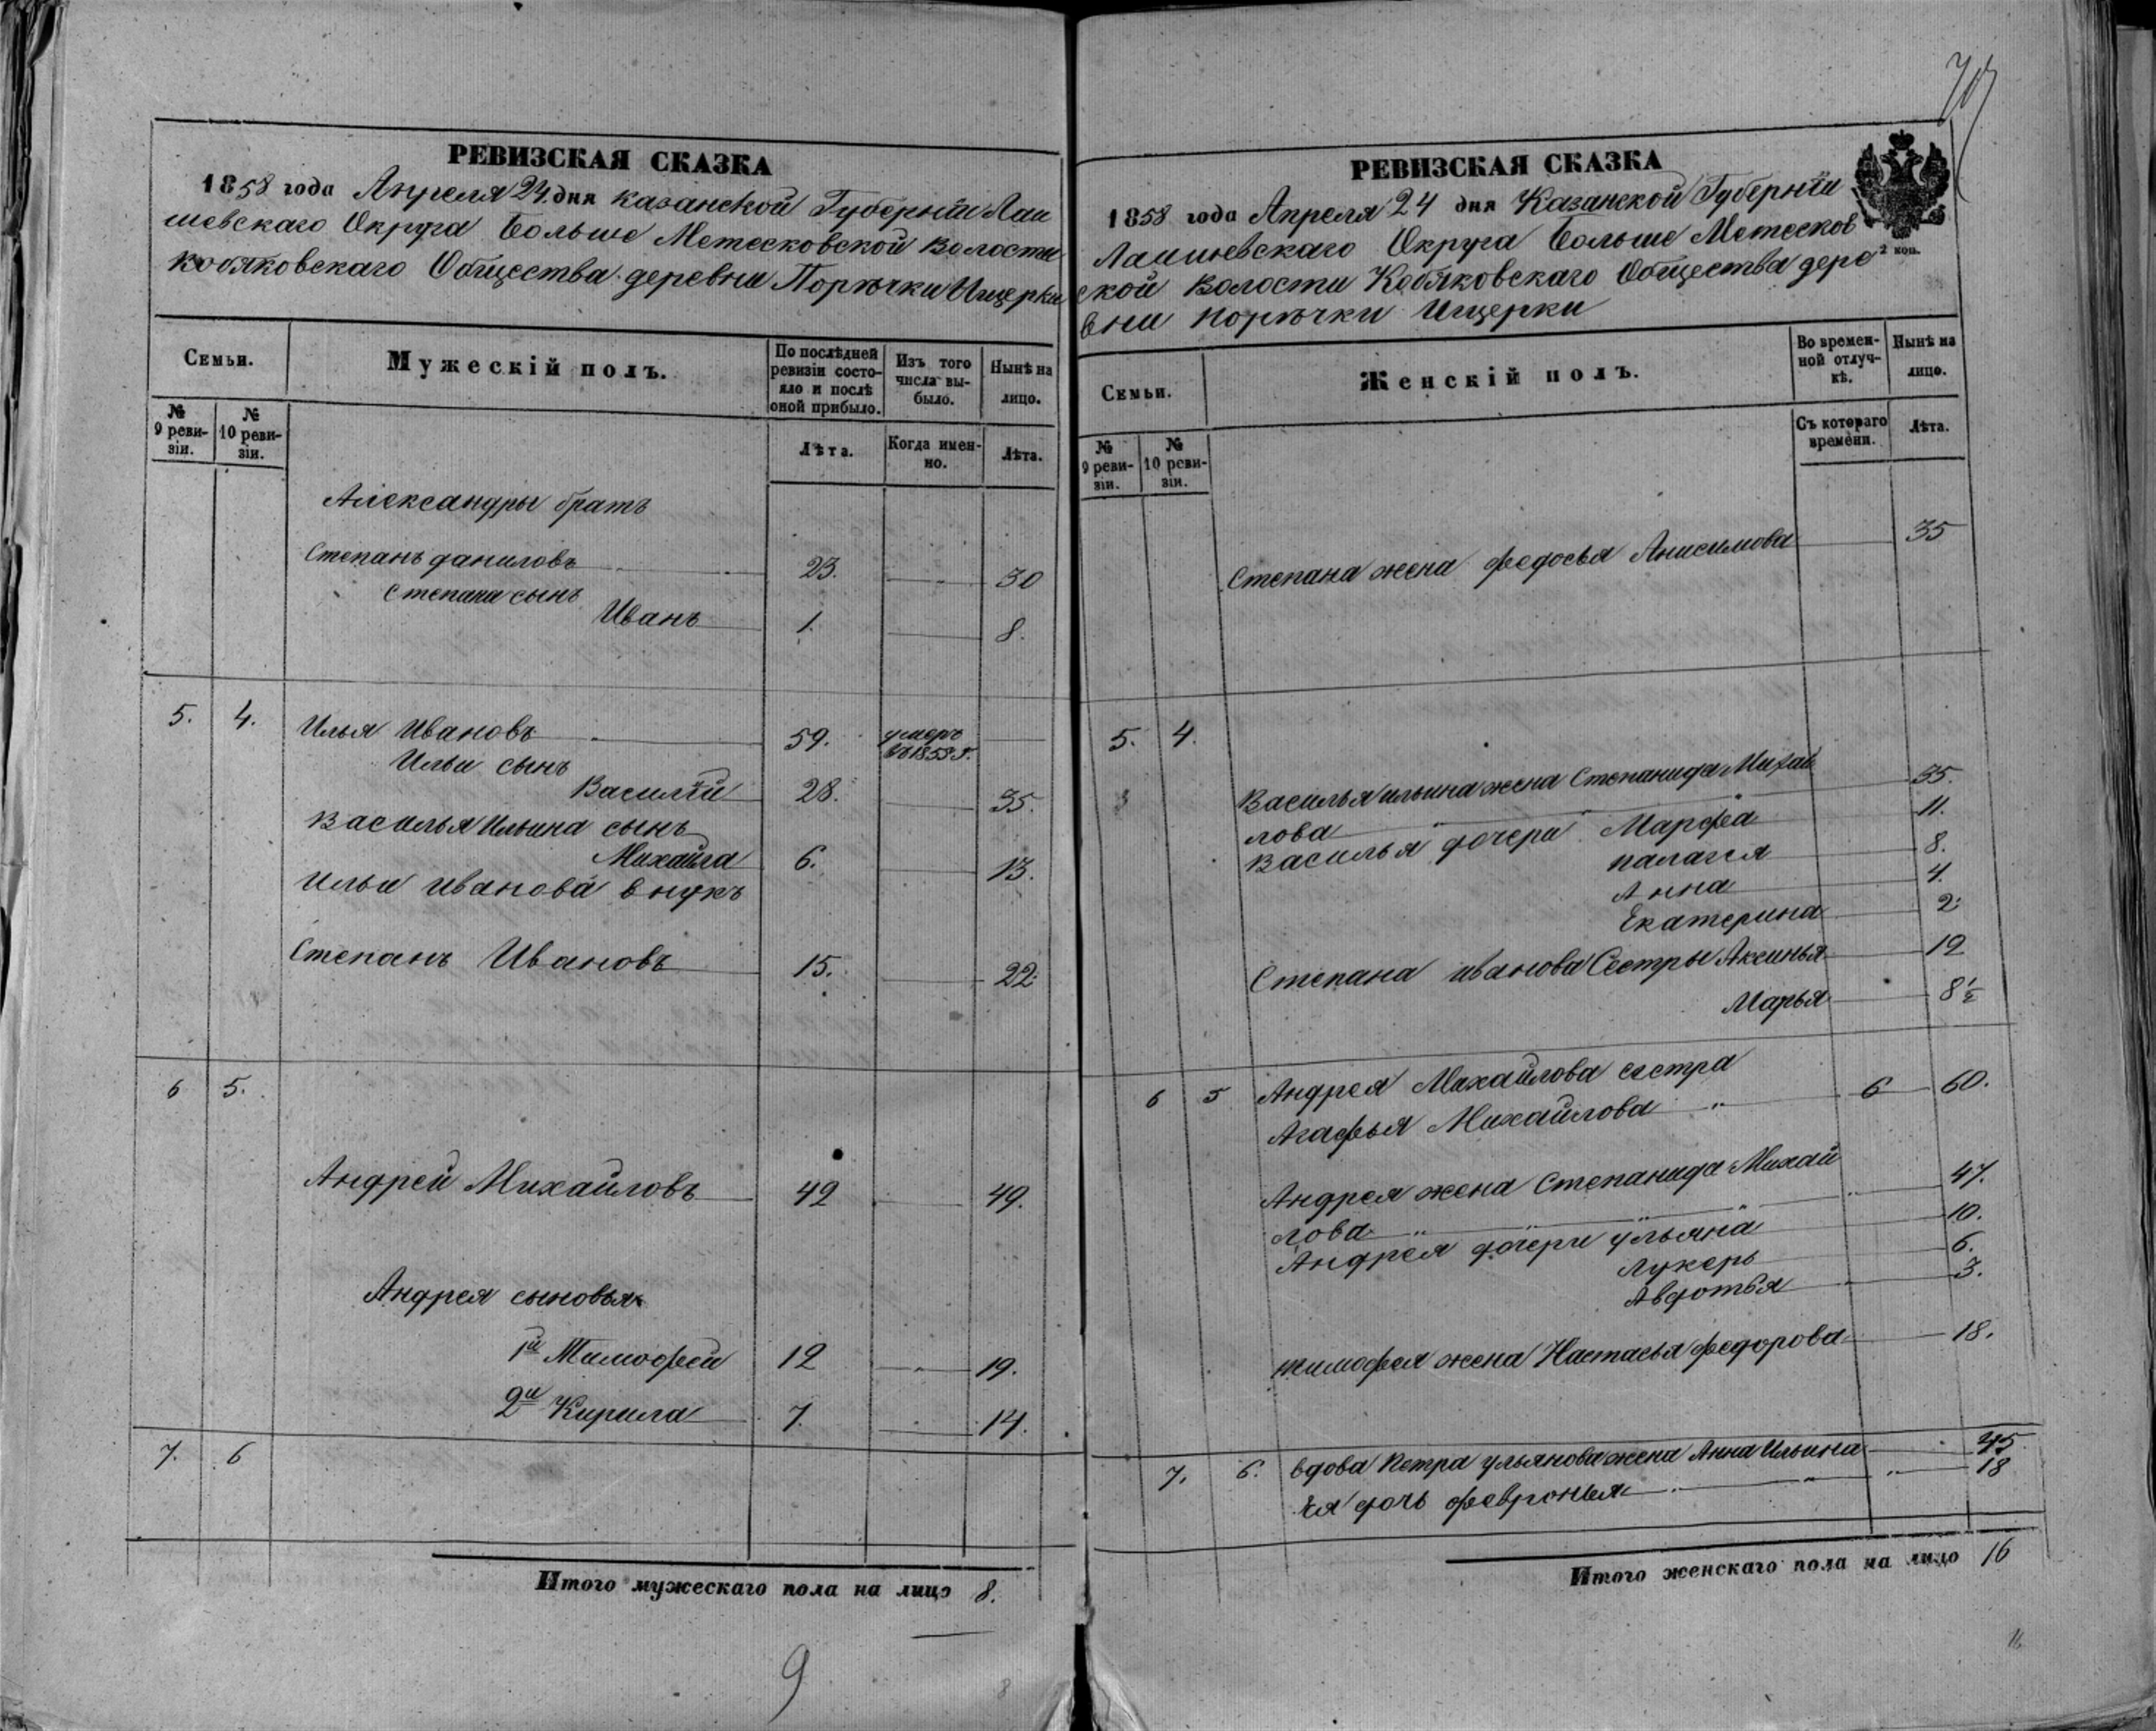 РЕВИЗСКАЯ СКАЗКА
1858 года Апреля 24 дня Казанской Губернiи Лаи
шевскаго Округа Больше Метесковской Волости
Кобяковскаго Общества деревни Порѣчки Ищерки
Семьи.
Мужескiй полъ.
По послѣдней ревизiи состо-
яло и послѣ
оной прибыло.
Изъ того
числа вы-
было.
Нынѣ на
лицо.
№
9 реви-
зiи.
№
10 реви-
зiи.
Лѣта.
Когда имен-
но.
Лѣта.
Александры братъ
Степанъ Даниловъ 23. 30
Степана сынъ
Иванъ 1. 8.
5. 4. Илья Ивановъ 59. умеръ
Ильи сынъ
Василiй 28. 35.
Василья Ильина сынъ
Михайла 6. 13.
Ильи Иванова внукъ
Степанъ Ивановъ 15. 22.
6 5.
Андрей Михайловъ 42 49.
Андрея сыновья
1й Тимофей 12 19.
2й Кирила 7. 14.
7. 6
Итого мужескаго пола на лицо 8.
9
РЕВИЗСКАЯ СКАЗКА
1858 года Апреля 24 дня Казанской Губернiи
Лаишевскаго Округа Больше Метесков
ской Волости Кобяковскаго Общества дере
2 коп.
вни Порѣчки Ищерки
Семьи.
Женскiй полъ.
Во времен-
ной отлуч-
кѣ.
Нынѣ на
лицо.
№
9 реви-
зiи.
№
10 реви-
зiи.
Съ котораго
времени.
Лѣта.
Степана жена Федосья Анисимова 35
5. 4.
Василья Ильина жена Степанида Михай
лова 35.
Василья дочери Марфа 11.
Палагея 8.
Анна 4.
Екатерина 2.
Степана Иванова Сестры Аксинья 12
Марья 8½
6 5 Андрея Михайлова сестра
Агафья Михайлова 6 60.
Андрея жена Степанида Михай
лова 47.
Андрея дочери Ульяна 10.
Лукерь 6.
Авдотья 3.
Тимофея жена Настасья Федорова 18.
7. 6. вдова Петра Ульянова жена Анна Ильина 45
Ея дочь Февронья 18
Итого женскаго пола на лицо 16